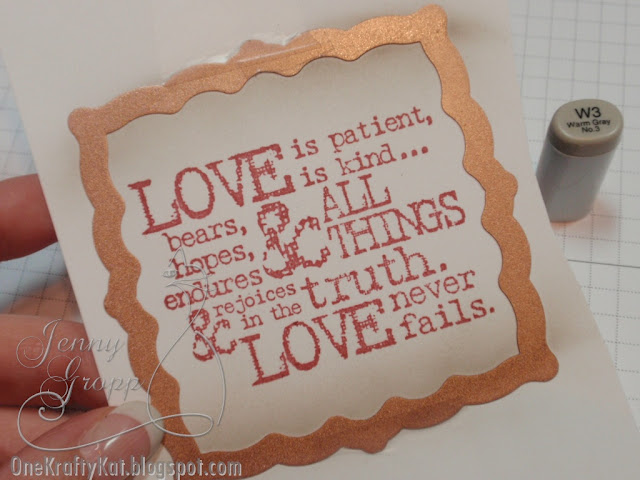 LOVE is patient,
is kind...
bears,
hopes,
endures
& ALL
THINGS
& rejoices
in the truth.
LOVE never
fails.
W3
Warm Gray
No.3
Jenny
Gropp
OneKraftyKat.blogspot.com